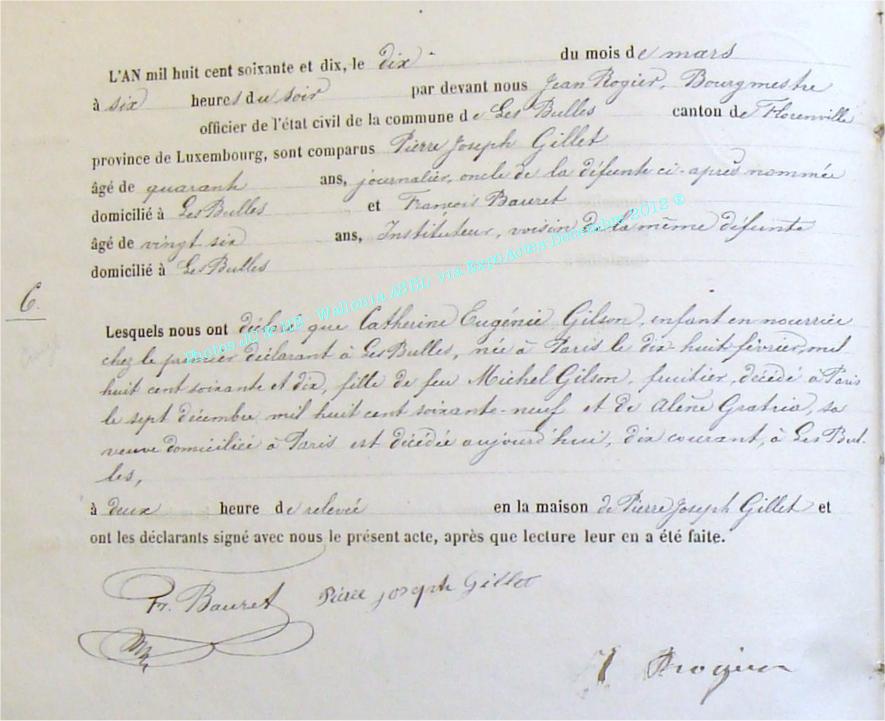 L'AN mil huit cent soixante et dix, le dix du mois de mars
à six heures du soir par devant nous Jean Rogier, Bourgmestre
officier de l'état civil de la commune de Les Bulles canton de Florenville
province de Luxembourg, sont comparus Pierre Joseph Gillet
âgé de quarante ans, journalier, oncle de la défunte ci-après nommée
domicilié à Les Bulles et François Bauret
âgé de vingt six ans, Instituteur, voisin de la même défunte
domicilié à Les Bulles
6.
Lesquels nous ont déclaré que Catherine Eugénie Gilson, enfant en nourrice
chez le premier déclarant à Les Bulles, née à Paris le dix huit février mil
huit cent soixante et dix, fille de feu Michel Gilson, fruitier, décédé à Paris
le sept décembre mil huit cent soixante-neuf et de Alène Gratria, sa
veuve domiciliée à Paris est décédée aujourd'hui, dix courant, à Les Bul-
les,
à deux heure de relevée en la maison de Pierre Joseph Gillet et
ont les déclarants signé avec nous le présent acte, après que lecture leur en a été faite.
Fr. Bauret Pierre Joseph Gillet
J Rogier
Wallonia ASBL via ExpoActes Décembre 2012 ®